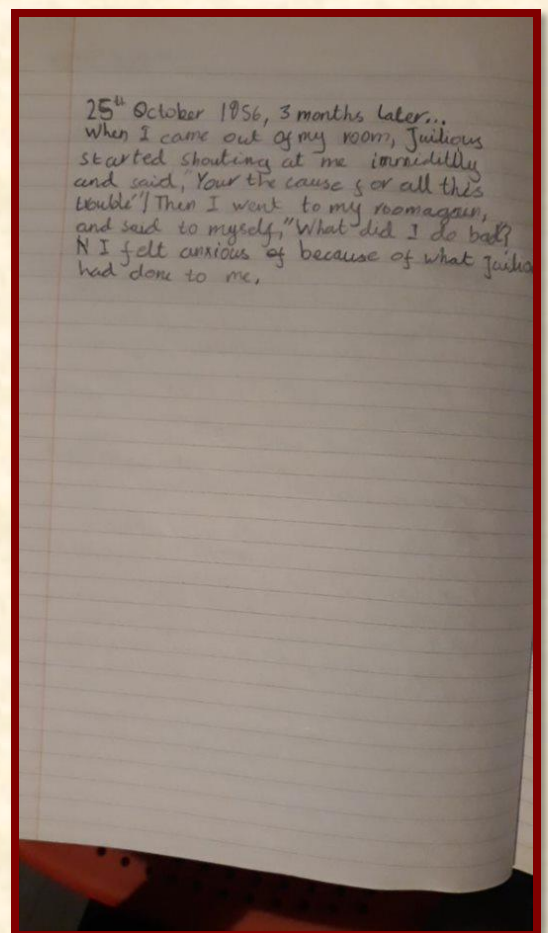 25th October 1856, 3 months later...
When I came out of my room, Juilious
started shouting at me immidillly
and said, "Your the cause for all this
trouble"! Then I went to my roomagain,
and said to myself, "What did I do bad?
N I felt anxious of because of what
had done to me.